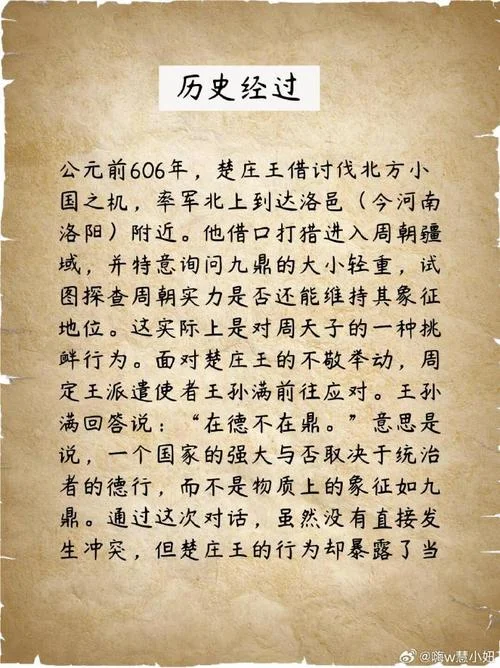 历史经过
公元前606年，楚庄王借讨伐北方小
国之机，率军北上到达洛邑（今河南
洛阳）附近。他借口打猎进入周朝疆
域，并特意询问九鼎的大小轻重，试
图探查周朝实力是否还能维持其象征
地位。这实际上是对周天子的一种挑
衅行为。面对楚庄王的不敬举动，周
定王派遣使者王孙满前往应对。王孙
满回答说：“在德不在鼎。”意思是
说，一个国家的强大与否取决于统治
者的德行，而不是物质上的象征如九
鼎。通过这次对话，虽然没有直接发
生冲突，但楚庄王的行为却暴露了当
@嗨w慧小妞